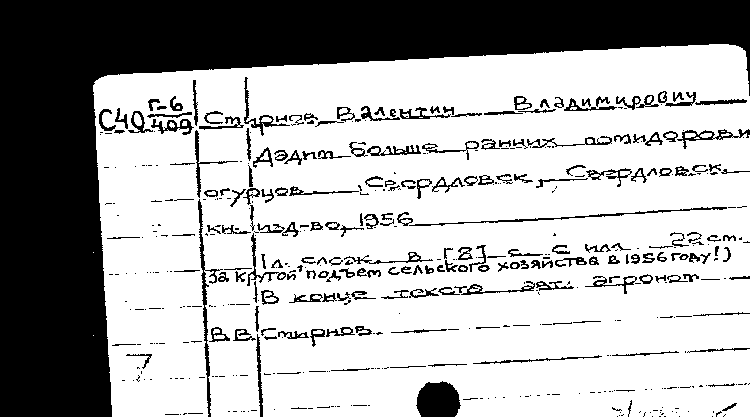 С40 Г-6/409 Смирнов, Валентин Владимирович
Дадим больше ранних помидоров и
огурцов. Свердловск, Свердловск.
кн. изд-во, 1956
1 л. слож. в [8] с. с илл 22 см.
(За крутой подъем сельского хозяйства в 1956 году!)
В конце текста авт. агроном
В.В. Смирнов.
7